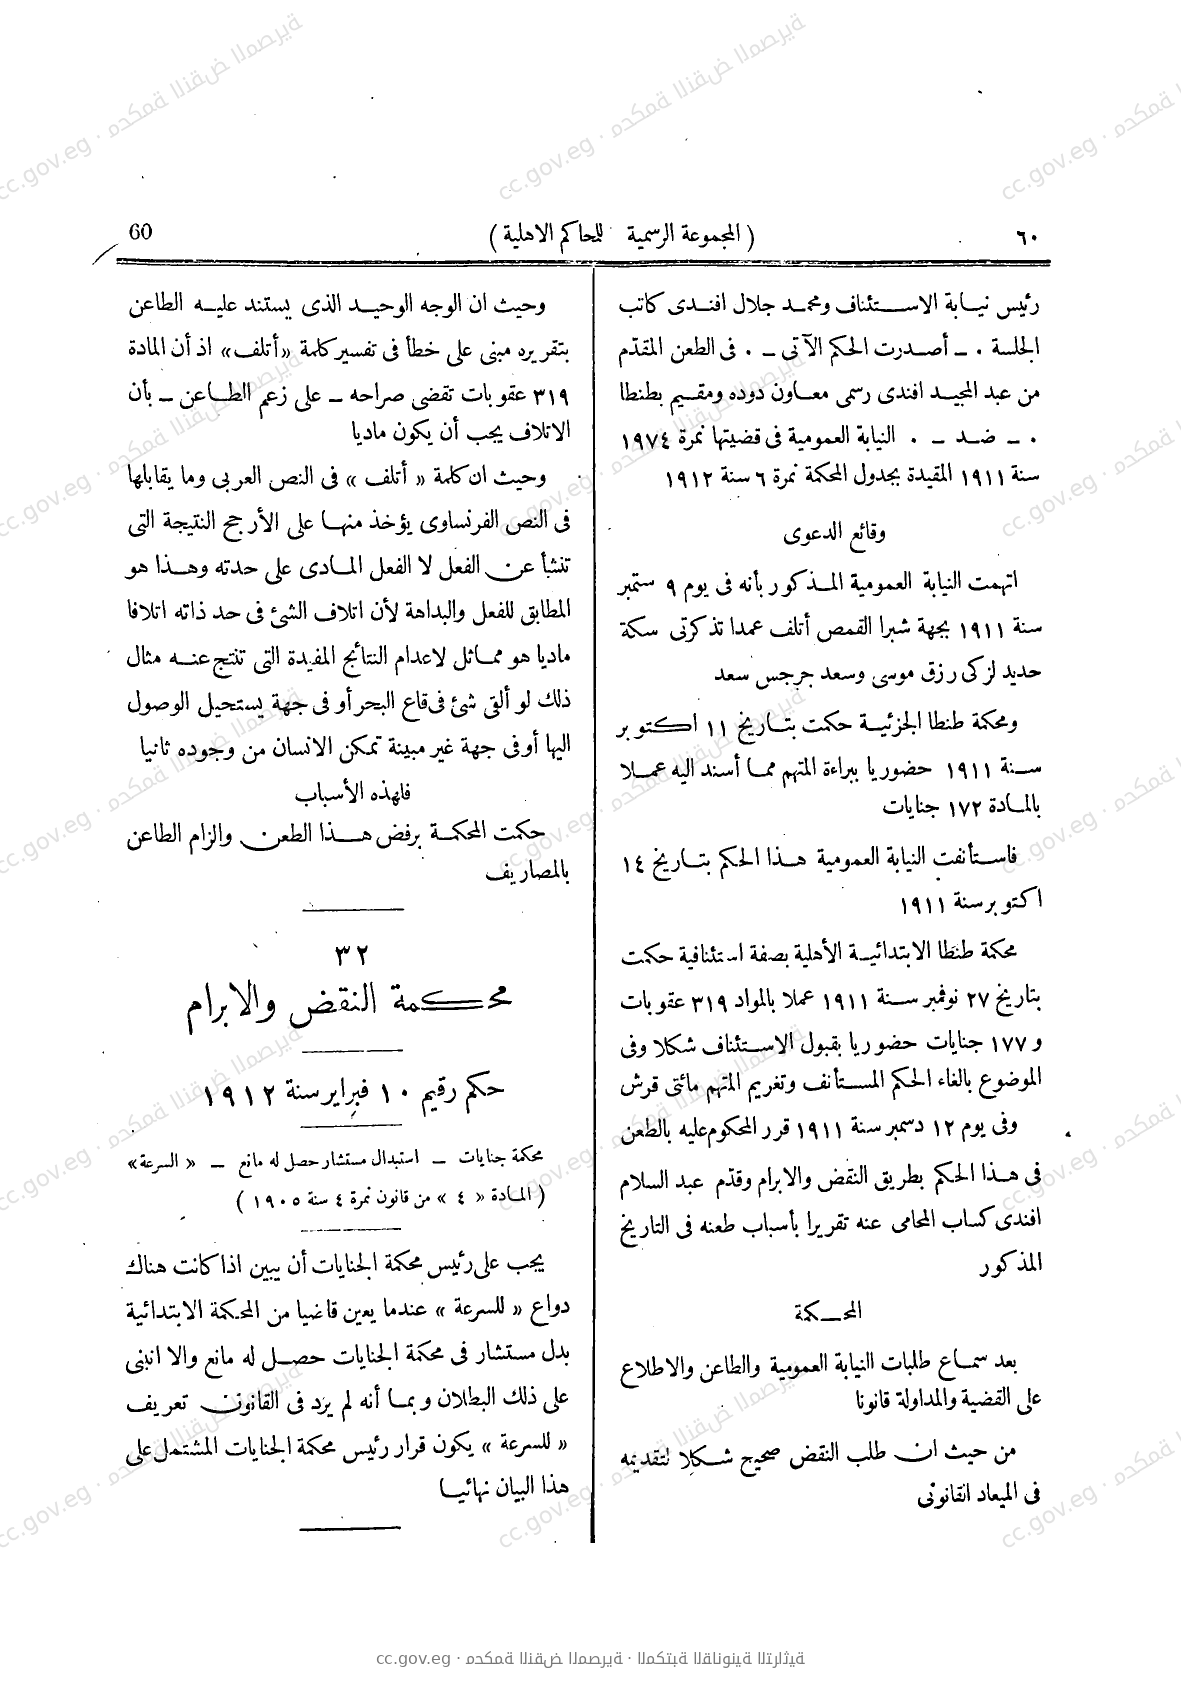 ٦٠
( المجموعة الرسمية للمحاكم الاهلية )
60
رئيس نيابة الاستئناف ومحمد جلال افندى كاتب
الجلسة ٠ ـ أصدرت الحكم الآتى ـ ٠ فى الطعن المقدّم
من عبد المجيد افندى رسمى معاون دوده ومقيم بطنطا
٠ ـ ضد ـ ٠ النيابة العمومية فى قضيتها نمرة ١٩٧٤
سنة ١٩١١ المقيدة بجدول المحكمة نمرة ٦ سنة ١٩١٢
وقائع الدعوى
اتهمت النيابة العمومية المذكور بأنه فى يوم ٩ ستمبر
سنة ١٩١١ بجهة شبرا القمص أتلف عمدا تذكرتى سكة
حديد لزكى رزق موسى وسعد جرجس سعد
ومحكمة طنطا الجزئية حكمت بتاريخ ١١ اكتوبر
سنة ١٩١١ حضوريا ببراءة المتهم مما أسند اليه عملا
بالمادة ١٧٢ جنايات
فاستأنفت النيابة العمومية هذا الحكم بتاريخ ١٤
اكتوبر سنة ١٩١١
محكمة طنطا الابتدائية الأهلية بصفة استئنافية حكمت
بتاريخ ٢٧ نوفمبر سنة ١٩١١ عملا بالمواد ٣١٩ عقوبات
و ١٧٧ جنايات حضوريا بقبول الاستئناف شكلا وفى
الموضوع بالغاء الحكم المستأنف وتغريم المتهم مائتى قرش
وفى يوم ١٢ دسمبر سنة ١٩١١ قرر المحكوم عليه بالطعن
فى هذا الحكم بطريق النقض والابرام وقدّم عبد السلام
افندى كساب المحامى عنه تقريرا بأسباب طعنه فى التاريخ
المذكور
المحكمة
بعد سماع طلبات النيابة العمومية والطاعن والاطلاع
على القضية والمداولة قانونا
من حيث ان طلب النقض صحيح شكلا لتقديمه
فى الميعاد القانونى
وحيث ان الوجه الوحيد الذى يستند عليه الطاعن
بتقريره مبنى على خطأ فى تفسير كلمة «أتلف» اذ أن المادة
٣١٩ عقوبات تقضى صراحه ـ على زعم الطاعن ـ بأن
الاتلاف يجب أن يكون ماديا
وحيث ان كلمة « أتلف » فى النص العربى وما يقابلها
فى النص الفرنساوى يؤخذ منها على الأرجح النتيجة التى
تنشأ عن الفعل لا الفعل المادى على حدته وهذا هو
المطابق للفعل والبداهة لأن اتلاف الشئ فى حد ذاته اتلافا
ماديا هو مماثل لاعدام النتائج المفيدة التى تنتج عنه مثال
ذلك لو ألقى شئ فى قاع البحر أو فى جهة يستحيل الوصول
اليها أو فى جهة غير مبينة تمكن الانسان من وجوده ثانيا
فلهذه الأسباب
حكمت المحكمة برفض هذا الطعن والزام الطاعن
بالمصاريف
٣٢
محكمة النقض والابرام
حكم رقيم ١٠ فبراير سنة ١٩١٢
محكمة جنايات ـ استبدال مستشار حصل له مانع ـ « السرعة»
( المادة « ٤ » من قانون نمرة ٤ سنة ١٩٠٥ )
يجب على رئيس محكمة الجنايات أن يبين اذا كانت هناك
دواع « للسرعة » عندما يعين قاضيا من المحكمة الابتدائية
بدل مستشار فى محكمة الجنايات حصل له مانع والا انبنى
على ذلك البطلان وبما أنه لم يرد فى القانون تعريف
« للسرعة » يكون قرار رئيس محكمة الجنايات المشتمل على
هذا البيان نهائيا
cc.gov.eg · محكمة النقض المصرية · المكتبة القانونية التراثية